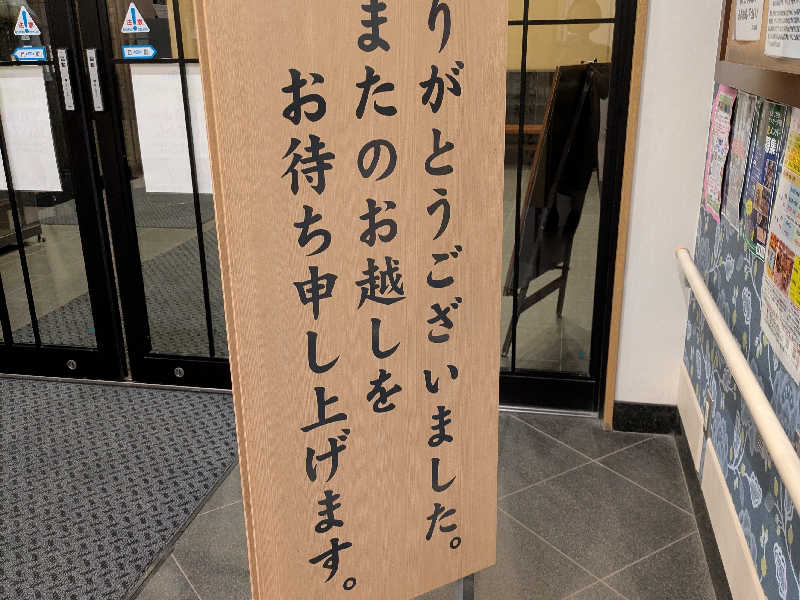 りがとうございました。
またのお越しを
お待ち申し上げます。
注意
注意